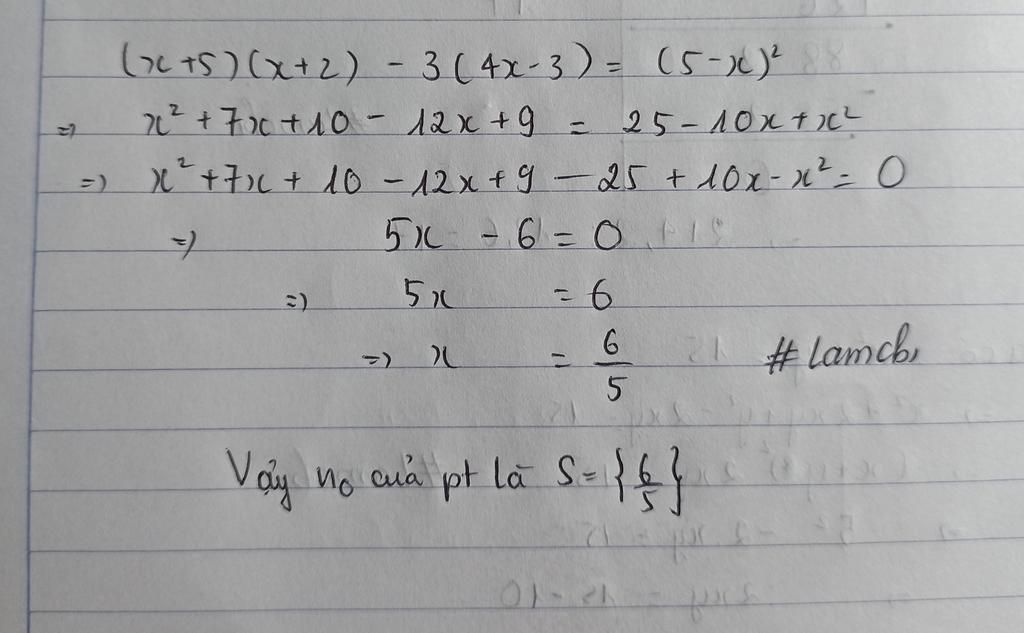 (x+5)(x+2) - 3(4x-3) = (5-x)²
=> x²+7x+10 - 12x+9 = 25-10x+x²
=> x²+7x+10-12x+9-25+10x-x²=0
=> 5x - 6 = 0
=> 5x = 6
=> x = 6/5 #lamcb,
Vậy no của pt là S={6/5}